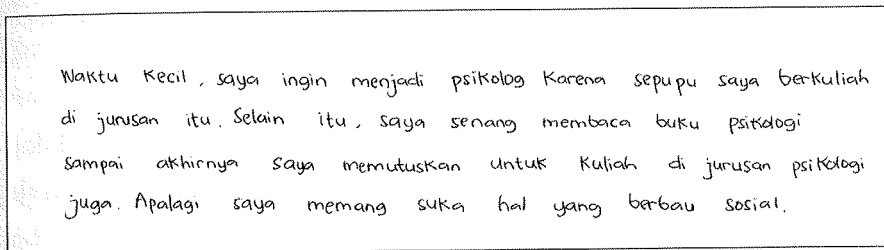 Waktu kecil, saya ingin menjadi psikolog karena sepupu saya berkuliah
di jurusan itu. Selain itu, saya senang membaca buku psikologi
sampai akhirnya saya memutuskan untuk kuliah di jurusan psikologi
juga. Apalagi saya memang suka hal yang berbau sosial.